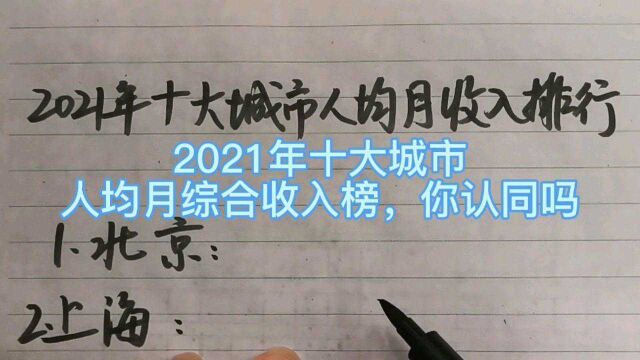 2021年十大城市人均月收入排行
2021年十大城市
人均月综合收入榜，你认同吗
1.北京：
2.上海：